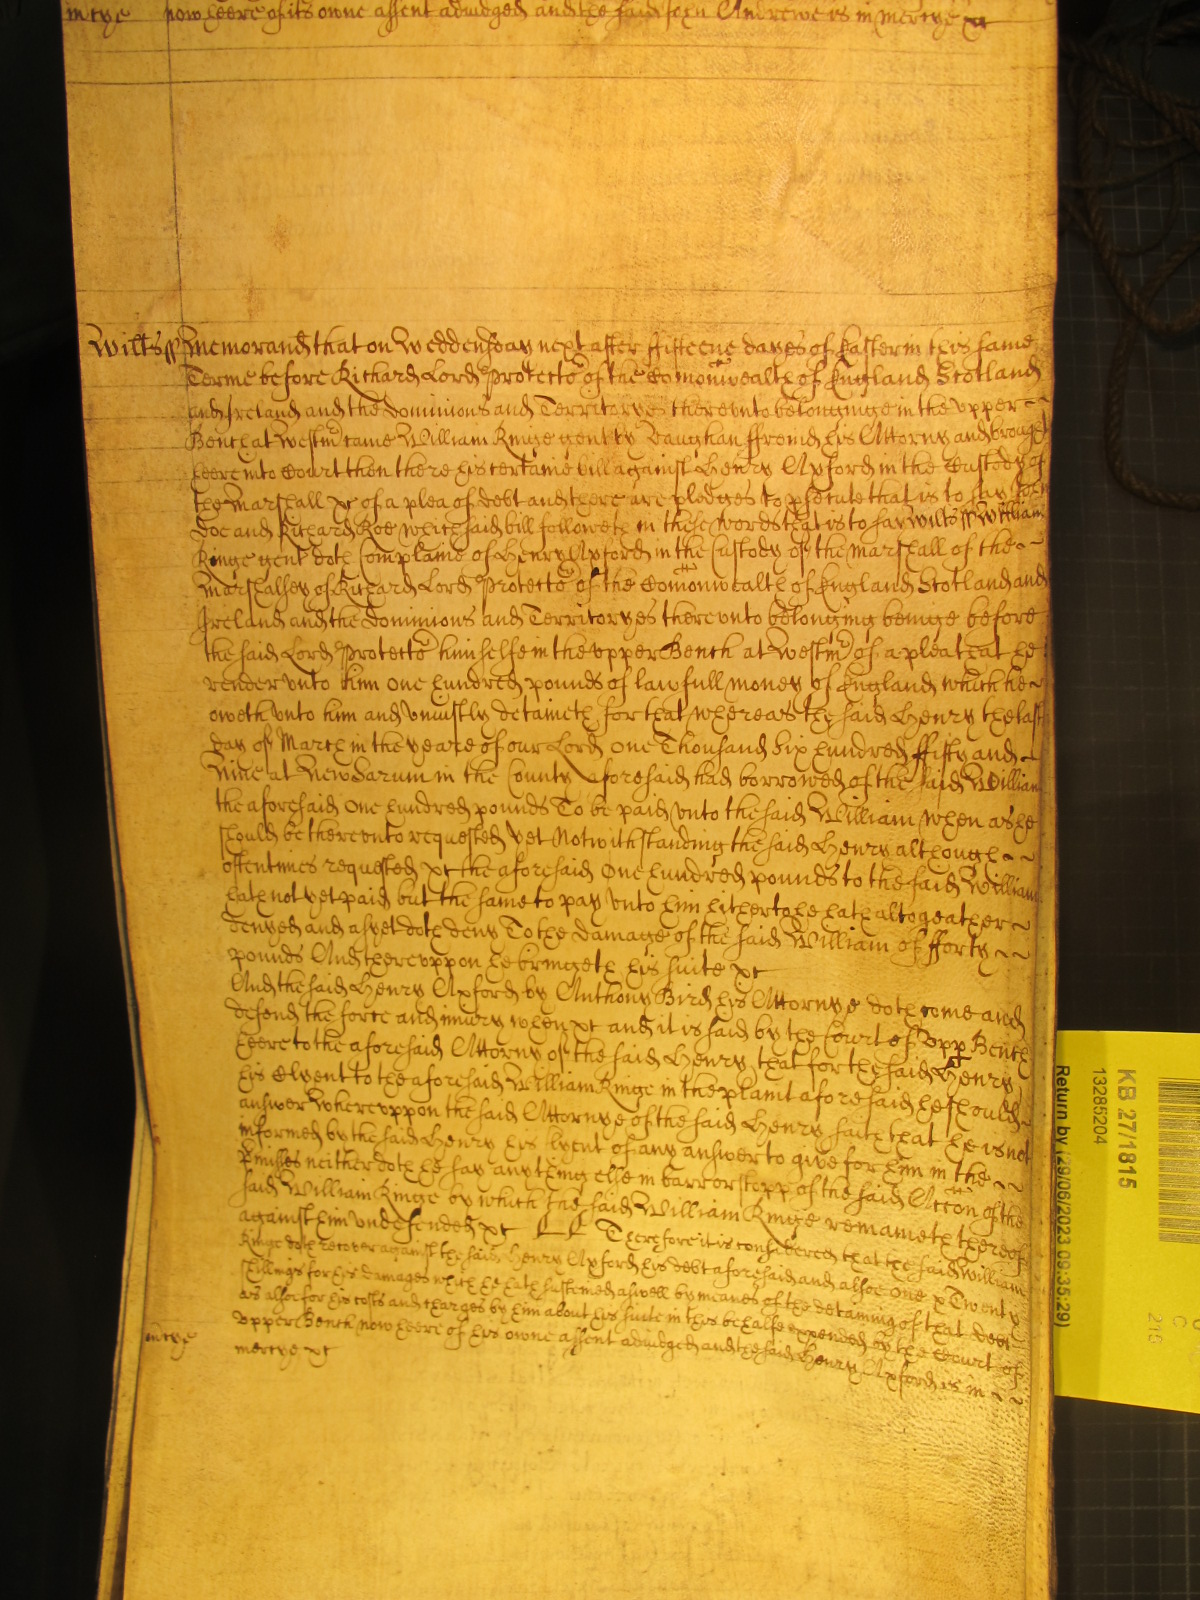 mcye now heere of its owne assent adiudged and the said John Andrewe is in mercye &c
Wilts ss Memorand that on Weddensday next after fifteene dayes of Easter in this same
Terme before Richard Lord Protecto:r of the Comonwealth of England Scotland
and Ireland and the Dominions and Territoryes therevnto belonginge in the vpper
Bench at Westm:r came William Kinge gent by Vaughan ffromd his Attorny and brought
heere into Court then there his certaine bill against Henry Apford in the Custody of
the Marshall &c of a plea of debt and there are pledges to psecute that is to say John
Doe and Richard Roe which said bill followeth in these words that is to say wilts ss William
Kinge gent doth Complaine of Henry Apford in the Custody of the Marshall of the
Marshalsey of Richard Lord Protecto:r of the Comonwealth of England Scotland and
Ireland and the Dominions and Territoryes there vnto belonging beinge before
the said Lord Protecto:r himselfe in the vpper Bench at Westm:r of a plea that he
render vnto him One hundred pounds of lawfull money of England which he
oweth vnto him and vniustly detaineth for that whereas the said Henry the last
day of March in the yeare of our Lord One Thousand Six hundred ffifty and
Nine at New Sarum in the County aforesaid had borrowed of the said William
the aforesaid One hundred pounds To be paid vnto the said William when as he
should be therevnto requested yet Notwithstanding the said Henry although
oftentimes requested &c the aforesaid One hundred pounds to the said William
hath not yet paid but the same to pay vnto him hitherto he hath altogeather
denyed and as yet doth deny To the damage of the said William of fforty
pounds And therevppon he bringeth his suite &c
And the said Henry Apford by Anthony Bird his Attornye doth come and
defend the force and iniury when &c and it is said by the Court of Vpp Bench
heere to the aforesaid Attorny of the said Henry that for the said Henry
his Clyent to the aforesaid William Kinge in the plaint aforesaid he should
answer Wherevppon the said Attornye of the said Henry saith that he is not
informed by the said Henry his lyent of any answer to give for him in the
Pmisses neither doth he say any thing else in barr or stopp of the said Accon of the
said William Kinge by which the said William Kinge remaineth thereof
against him vndefended &c Therefore it is considered that the said William
Kinge doth recover against the said Henry Apford his debt aforesaid and alsoe One & Twenty
shillings for his damages which he hath susteined aswell by meanes of the detaining of that debt
as alsoe for his costs and charges by him about his suite in this behalfe expended by the Court of
mcye vpper Bench now heere of his owne assent adiudged and the said Henry Apford is in
mercye &c
KB 27/1815
13285204
Return by (29/06/2023 09:35:29)